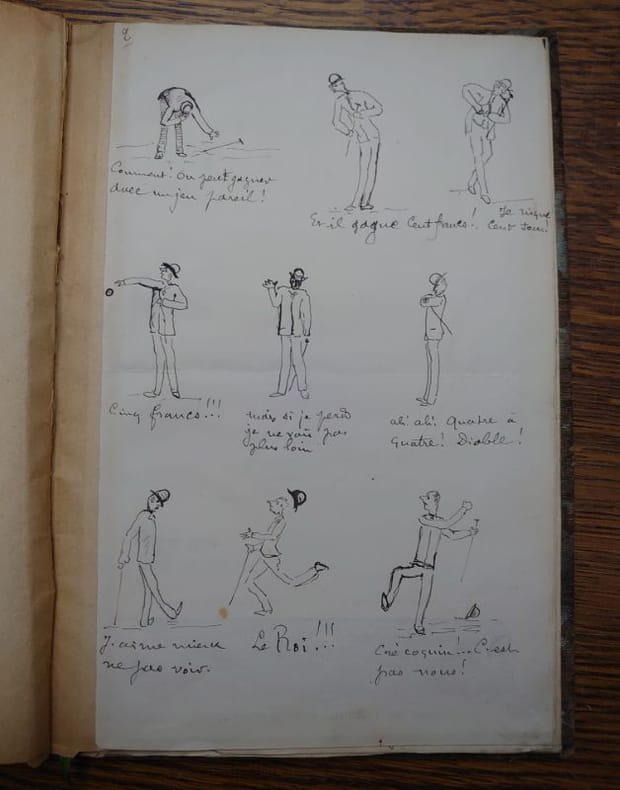 2
Comment! On peut gagner
avec un jeu pareil!
Et il gagne Cent francs!
Je risque
Cent sous!
Cinq francs!!!
mais si je perds
je ne vais pas
plus loin
ah! ah! Quatre à
Quatre! Diable!
J'aime mieux
ne pas voir.
Le Roi!!!
Cré coquin!... C'est
pas nous!